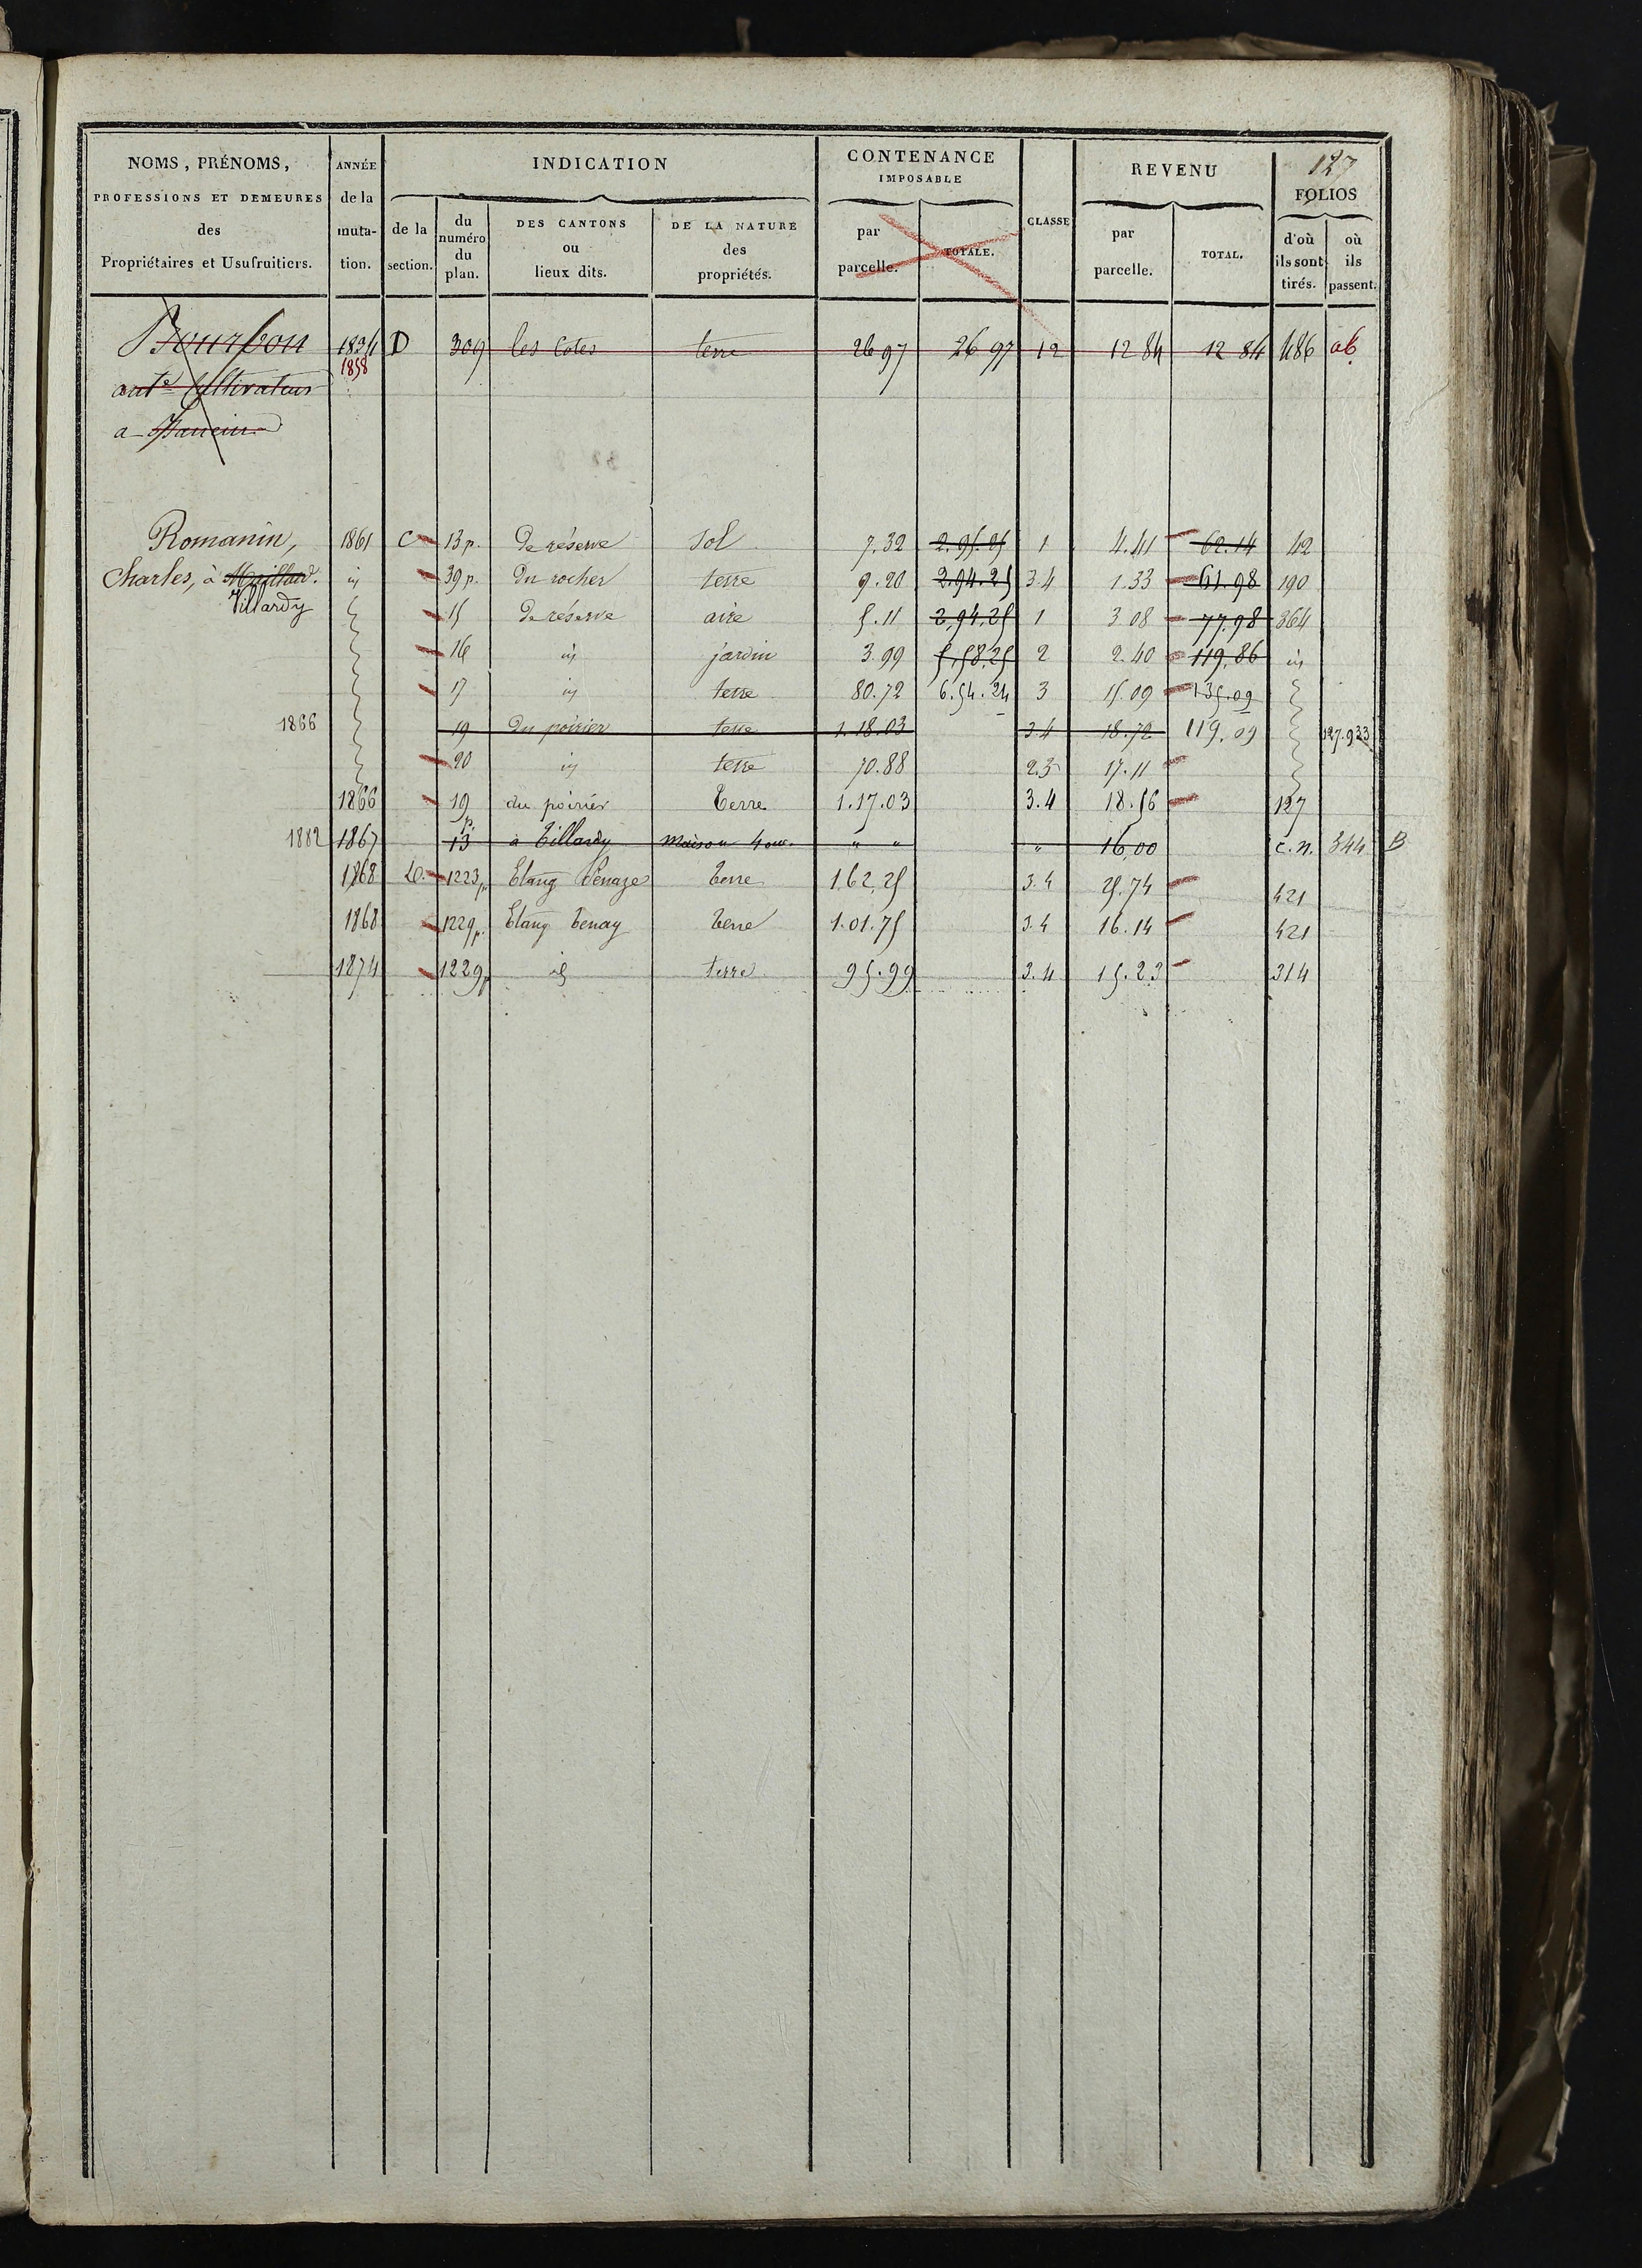 127
NOMS, PRÉNOMS, PROFESSIONS ET DEMEURES des Propriétaires et Usufruitiers.
ANNÉE de la muta- tion.
INDICATION
de la section.
du numéro du plan.
DES CANTONS ou lieux dits.
DE LA NATURE des propriétés.
CONTENANCE IMPOSABLE
par parcelle.
TOTALE.
CLASSE
REVENU
par parcelle.
TOTAL.
FOLIOS
d'où ils sont tirés.
où ils passent.
Bourbon 1834 D 309 les Cotes terre 26 97 26 97 12 12 84 12 84 486 ab
1858
antᵉ Cultivateur
a
Romanin, 1861 C 13 p. De réserve Sol 7.32 2.95.25 1 4.41 62.14 42
Charles, à Maillard. id 39 p. Du rocher terre 9.20 2.94.25 3.4 1.33 61.98 190
Tillardy 15 De réserve aire 5.11 2.94.25 1 3 08 77.98 364
16 id jardin 3.99 5.58.25 2 2.40 119.86 id
17 id terre 80.72 6.54.24 3 15.09 135.09
1866 19 Du poirier terre 1.18.03 3.4 18.72 119.09 127.933
20 id terre 70.88 2.3 17.11
1866 19 p. du poirier terre 1.17.03 3.4 18.56 127
1882 1867 13 à Tillardy maison 4 ouv. " " " 16,00 C.n. 344 B
1868 D. 1223 p. Etang terre 1.62.25 3.4 25.74 421
1868 1229 p. Etang tenay terre 1.01.75 3.4 16.14 421
1874 1229 p id terre 95.99 3.4 15.23 314